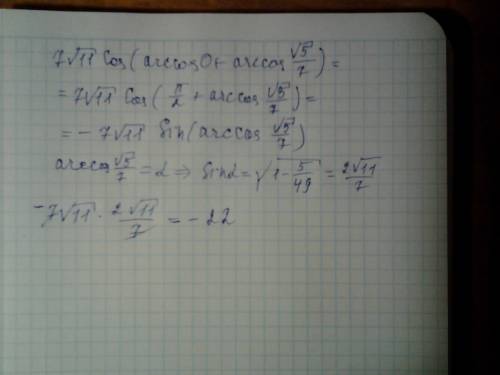 7√11 Cos(arccos0+ arccos √5/7)=
=7√11 Cos(π/2 + arccos √5/7)=
=-7√11 Sin(arccos √5/7)
arccos √5/7 = α ⇒ Sinα = √(1-5/49) = 2√11/7
-7√11 · 2√11/7 = -22